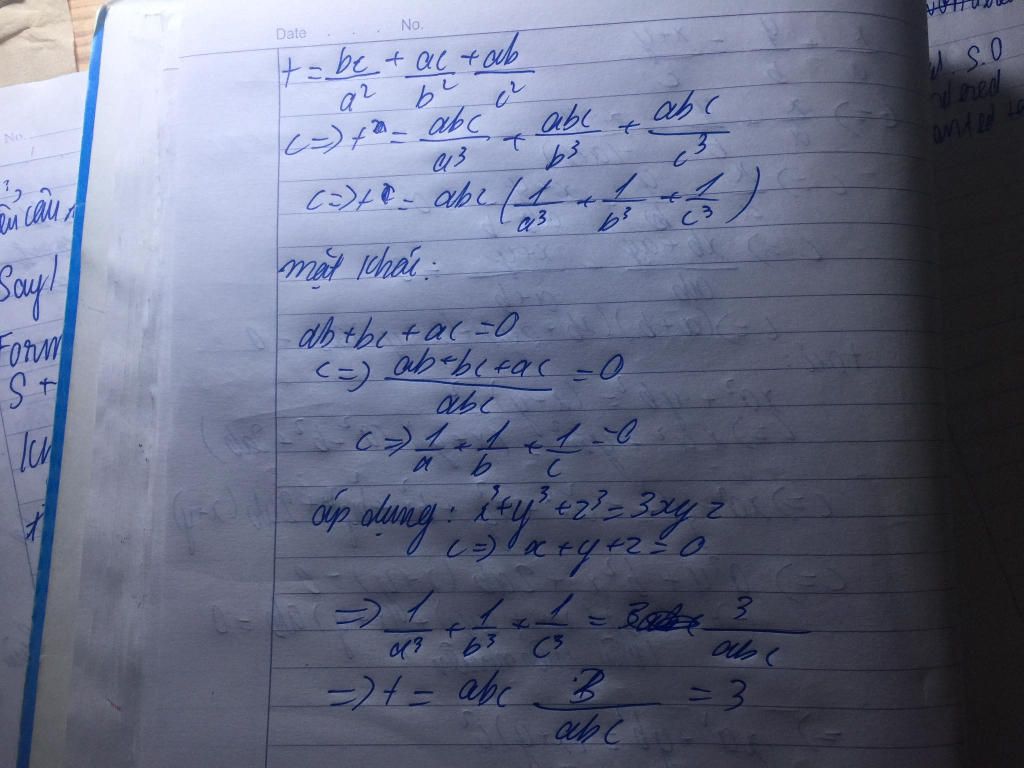 Date . . . No.
t = bc/a² + ac/b² + ab/c²
<=> t = abc/a³ + abc/b³ + abc/c³
<=> t = abc (1/a³ + 1/b³ + 1/c³)
mặt khác:
ab + bc + ac = 0
<=> (ab + bc + ac)/abc = 0
<=> 1/a + 1/b + 1/c = 0
áp dụng: x³ + y³ + z³ = 3xyz
<=> x + y + z = 0
=> 1/a³ + 1/b³ + 1/c³ = 3/abc
=> t = abc 3/abc = 3
No.
Say
Form
S +
S.O